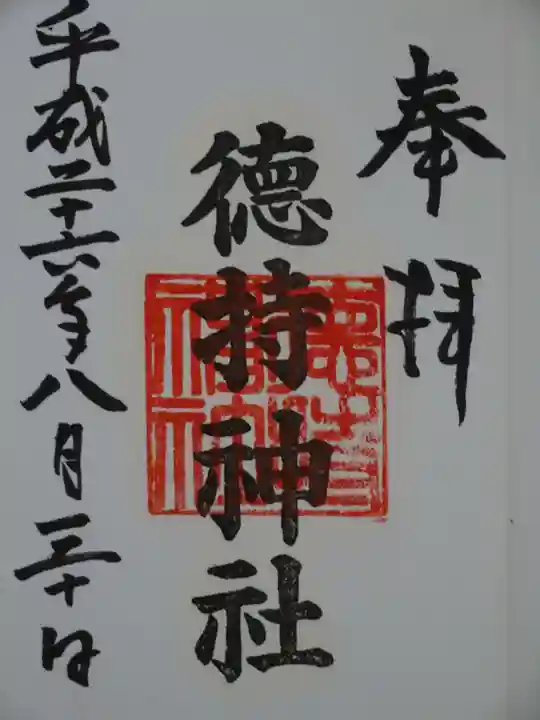 奉拝
德持神社
平成二十六年八月三十日